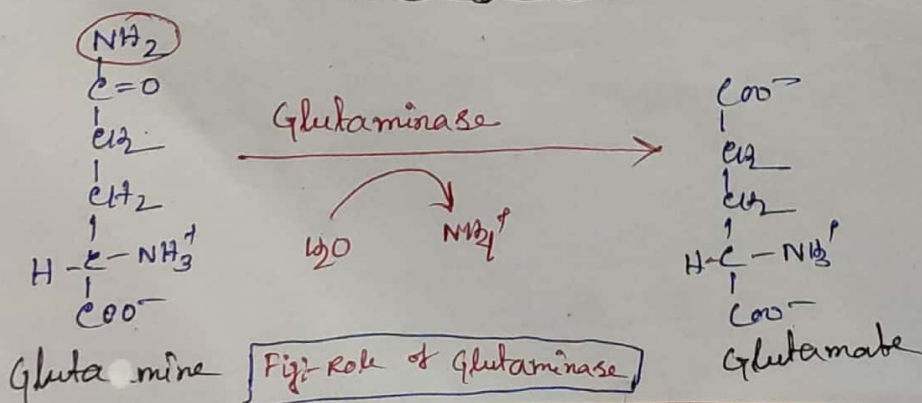 NH2
C=O
CH2
CH2
H-C-NH3+
COO-
Glutamine
Glutaminase
H2O
NH4+
COO-
CH2
CH2
H-C-NH3+
COO-
Glutamate
Fig:- Role of Glutaminase